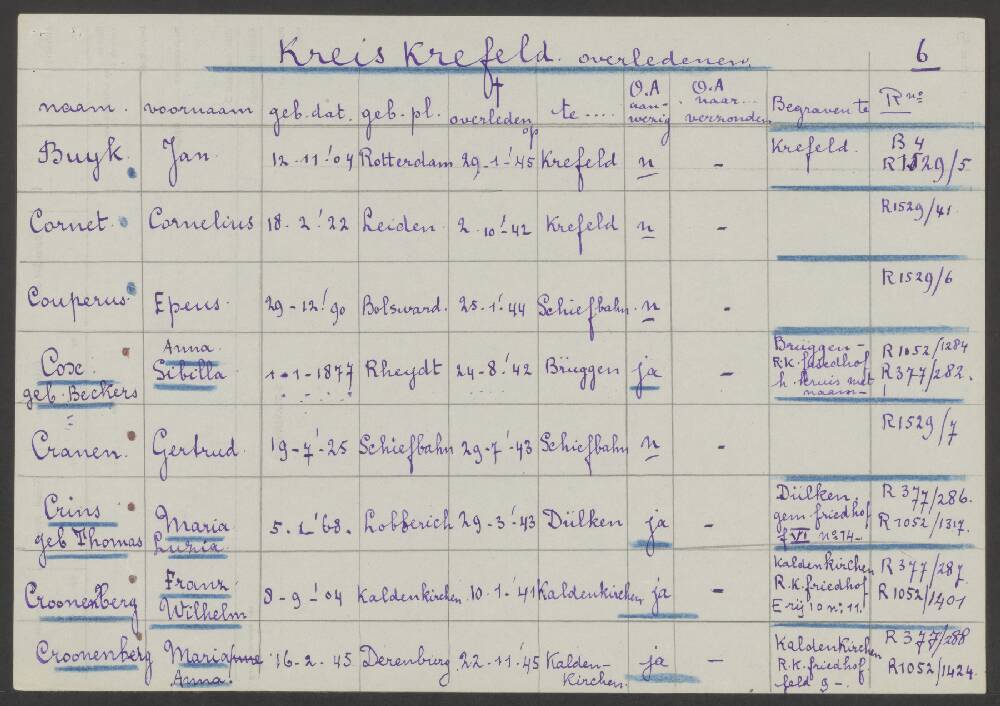 Kreis Krefeld. overledenen. 6
naam. voornaam geb. dat. geb. pl. † overleden op te .... O.A aan- wezig O.A naar... verzonden Begraven te R no
Buyk. Jan. 12-11-'04 Rotterdam 29-1-'45 Krefeld n - Krefeld. B 4
R1529/5
Cornet. Cornelius 18-2-'22 Leiden. 2-10-'42 Krefeld n - R1529/41
Couperus. Epeus. 29-12-'90 Bolsward. 25-1-'44 Schiefbahn. n - R1529/6
Cox. Anna Brüggen- R1052/1284
geb. Beckers Sibilla 1-1-1877 Rheydt 24-8-'42 Brüggen ja R.K. friedhof R377/282.
h. kruis met
naam-
Cranen. Gertrud. 19-7-'25 Schiefbahn 29-7-'43 Schiefbahn n - R1529/7
Crins Maria 5-2-'68. Lobberich 29-3-'43 Dülken ja - Dülken. R377/286.
geb Thomas Luzia. gem. friedhof R1052/1317.
f VI no 74-
Croonenberg Franz 8-9-'04 Kaldenkirchen. 10-1-'41 Kaldenkirchen ja - Kaldenkirchen R377/287.
Wilhelm R.K. friedhof R1052/1401
E rij 10 n: 11.
Croonenberg Maria 16-2-45 Derenburg 22-11-'45 Kalden- ja - Kaldenkirchen R377/288
Anna. Kirchen. R.K. friedhof R1052/1424.
feld 9-.